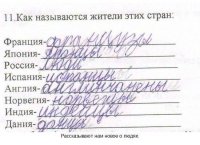 11. Как называются жители этих стран:
Франция- французы
Япония- японцы
Россия- люди
Испания- испанцы
Англия- англичанены
Норвегия- норвежцы
Индия- индейцы
Дания- донцы
Рассказывают нам новое о людях.